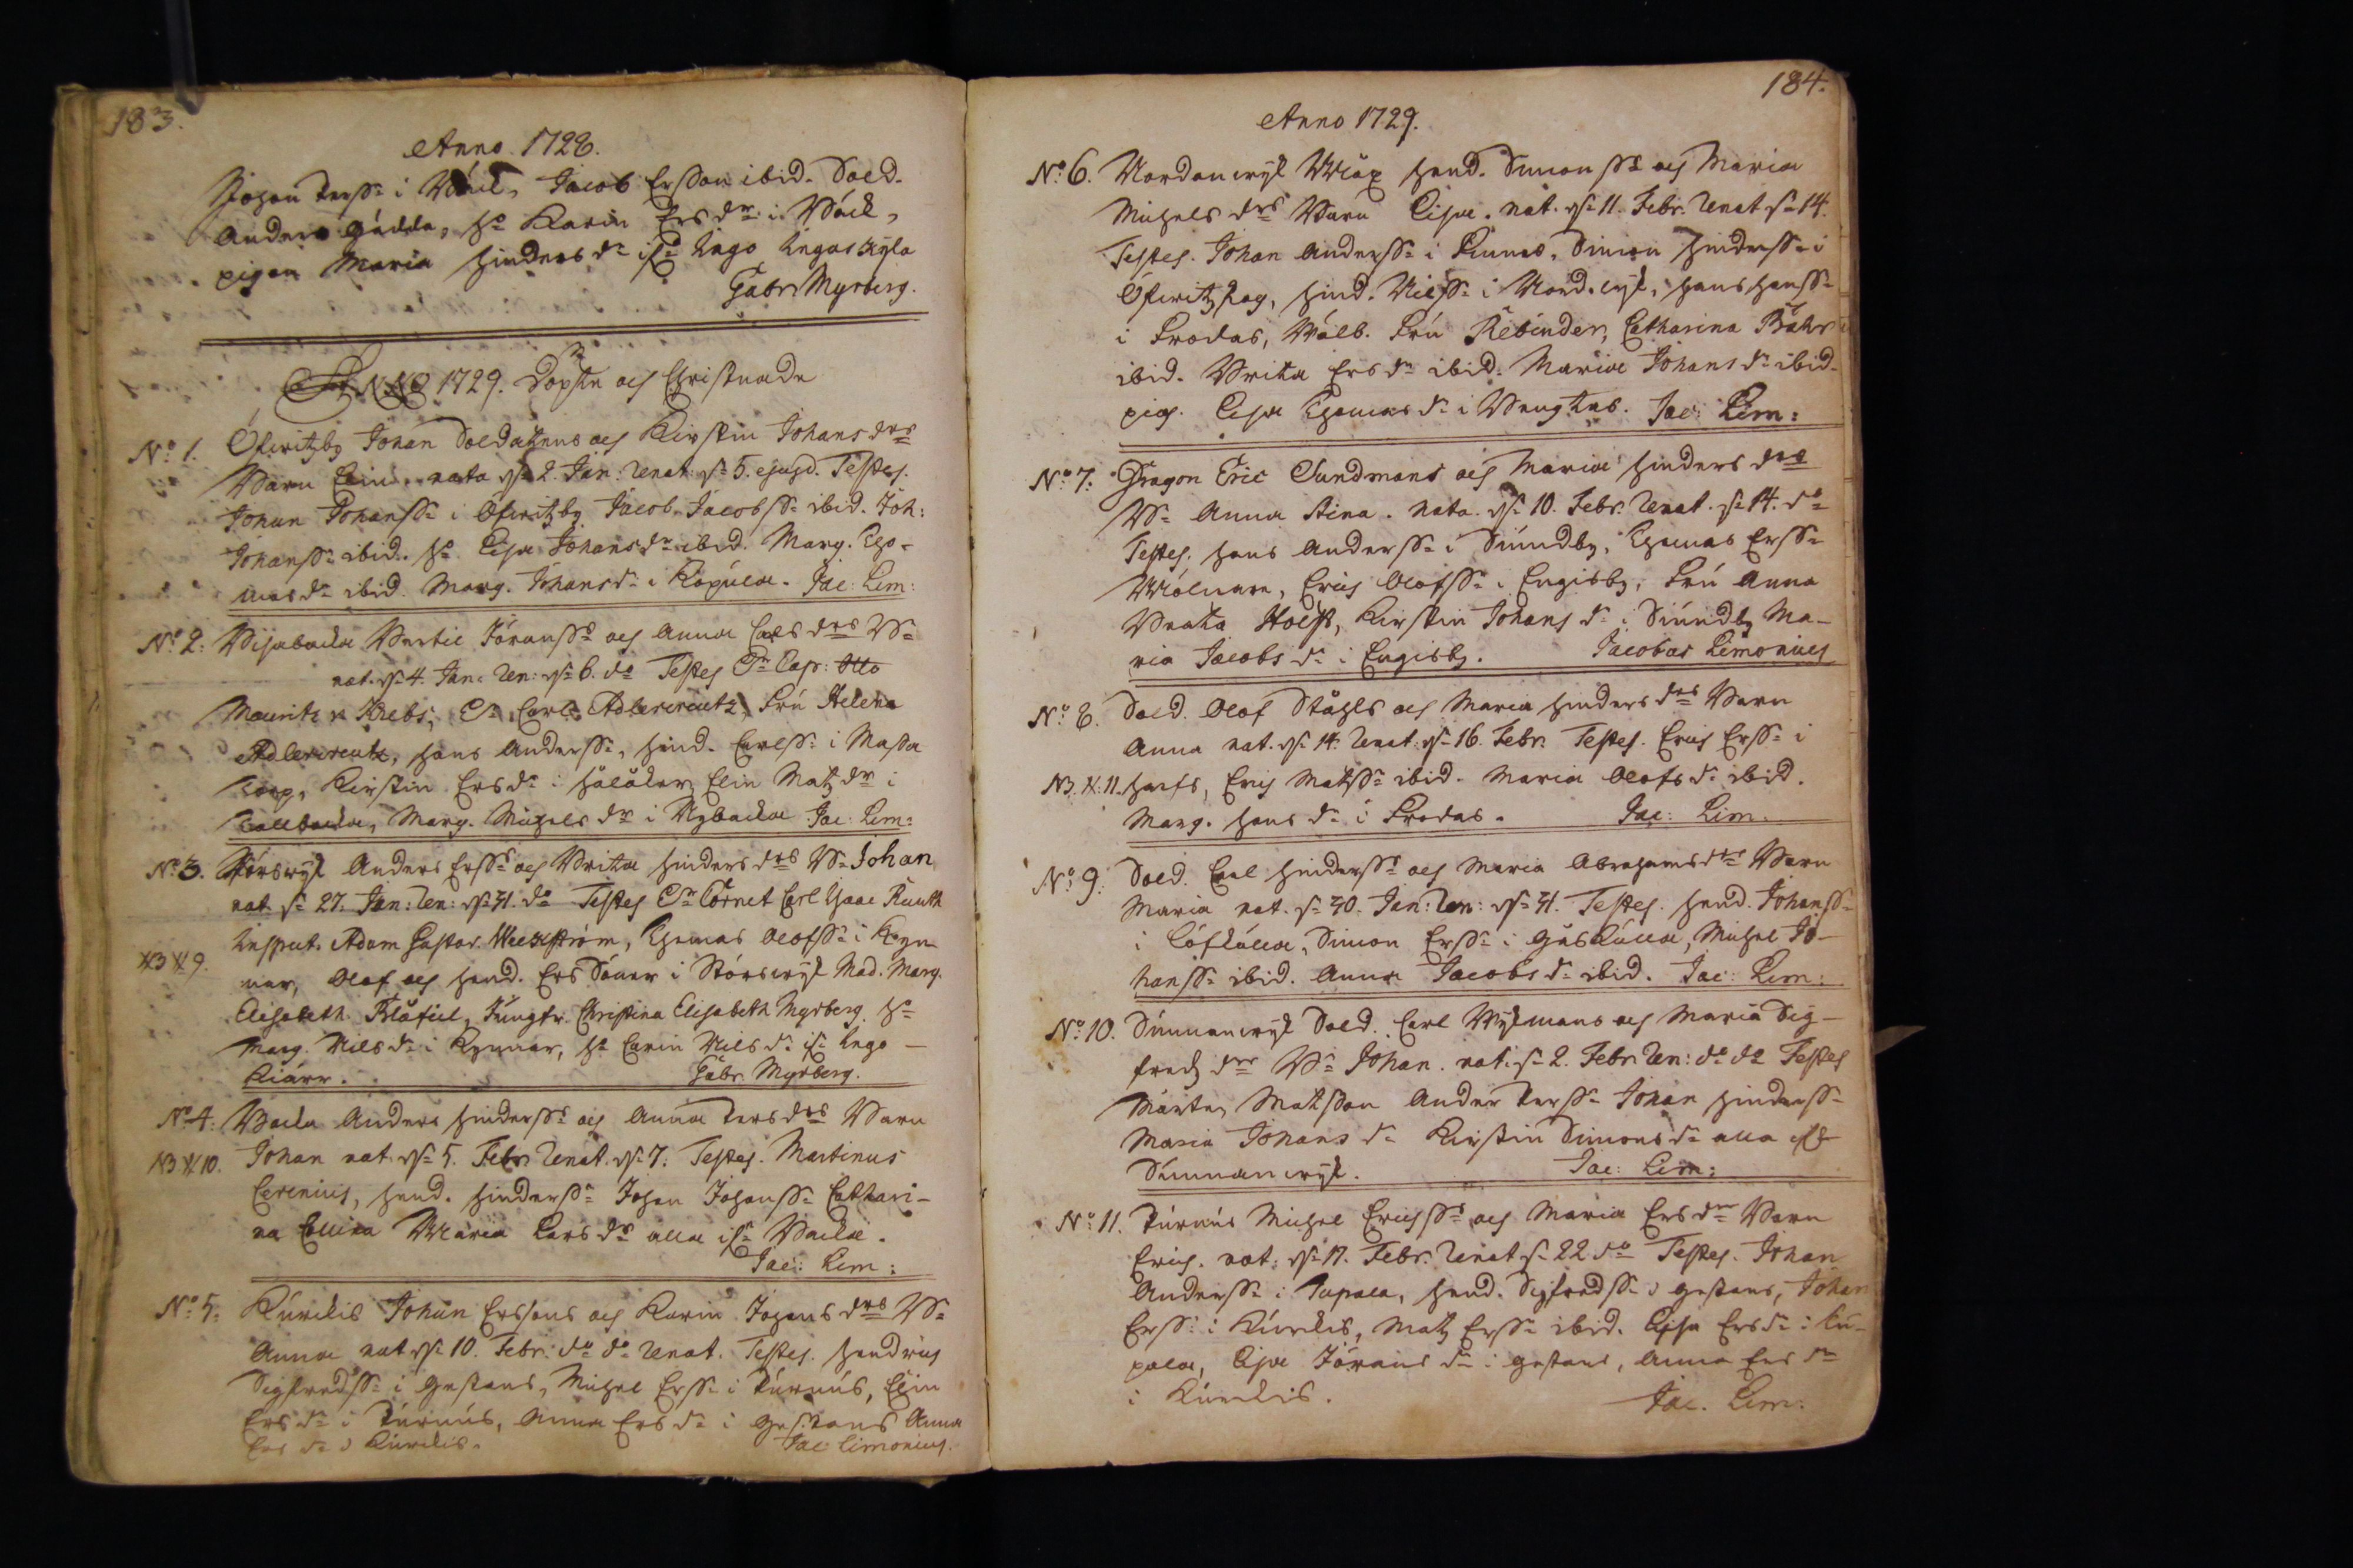 183.
Anno 1728.
Johan Larss: i Wäck, Jacob Ersson ibid. Sold.
Anders Gädda, H: Karin Ers dr: i Wäck,
pigan Maria Hinders dr: Ingo
Gabr: Myrberg.
ANNO 1729. Döpte och Christnade
No: 1. Öfwitzby Johan Soldatens och Kirstin Johans drs
Barn Elin nata d: 2. Jan: Renat: d: 5. ejusd. Testes.
Johan Johanss: i Öfwitzby Jacob Jacobss: ibid. Joh:
Johanss: ibid. H: Lisa Johans dr: ibid. Marg. Tho-
mas dr: ibid. Marg. Johans dr: i Kopula. Jac: Lim:
No: 2: Wisabacka Bertil Jöranss: och Anna Lars drs B:
nat. d: 4. Jan: Ren: d: 6. do Testes Cap: Otto
Mauritz v Krebs, Hr Carl Adlercreutz, Fru Helena
Adlercreutz, Hans Anderss:, Hind. Carlss: i Massa
Kirstin Ers dr: i Elin Matz dr i
Marg. Michels dr i Nybacka Jac: Lim:
No: 3. Störswyk Anders Erss: och Brita Hinders drs B: Johan
nat. d: 27. Jan: Ren: d: 31. do Testes Hr Cornet Carl Isaac Ruuth
Inspect. Adam Gustav. Weckström, Thomas Olofss: i Kyr-
N3 X 9. nar, Olof och Hend. Ers Söner i Störswyk Mad. Marg.
Elisabeth Blåfiel, Jungfr. Christina Elisabeth Myrberg. H:
Marg. Nils dr: i Kyrnar, H: Carin Nils dr: Ingo
Kiärr. Gabr. Myrberg.
No: 4: Backa Anders Hinderss: och Anna Lars drs Barn
N3 X 10. Johan nat. d: 5. Febr. Renat. d: 7. Testes. Martinus
Cerenius, Hend. Hinderss: Johan Johanss: Cathari-
na Maria Lars dr: alla Backa.
Jac: Lim:
No: 5: Kurckis Johan Erssons och Karin Johans drs B:
Anna nat d: 10. Febr: do do Renat. Testes. Hendrich
Sigfredss: i Gestans, Michel Erss: i Purnus, Elin
Ers dr: i Purnus, Anna Ers dr: i Gestans Anna
Ers dr: i Kurckis. Jac: Limonius.
184.
Anno 1729.
No: 6. Nordanwyk Hend. Simonss: och Maria
Michels drs Barn Lisa. nat. d: 11. Febr. Renat d: 14.
Testes. Johan Anderss: i Finnas, Simon Hinderss: i
Hind. Nilss: i Nord.wyk, Hans Hanss:
i Frodas, Wälb. Fru Rebinder, Catharina Bähr
ibid. Brita Ers dr: ibid. Maria Johans dr: ibid.
pig. Lisa Thomas dr: i Bengtas. Jac: Lim:
No: 7: Dragon Eric Sundmans och Maria Hinders drs
B: Anna Stina. nata. d: 10. Febr. Renat. d: 14. do
Testes, Hans Anderss: i Sundby, Thomas Erss:
Mölnare, Erich Olofss: i Engisby, Fru Anna
Beata Holst, Kirstin Johans dr: i Sundby Ma-
ria Jacobs dr: i Engisby. Jacobus Limonius
No: 8. Sold. Olof Ståhls och Maria Hinders drs Barn
Anna nat. d: 14. Renat: d: 16. Febr. Testes. Erich Erss: i
N3. X. 11. Erich Matss: ibid. Maria Olofs dr: ibid.
Marg. Hans dr: i Frodas. Jac: Lim.
No: 9: Sold. Carl Hinderss: och Maria Abrahams drs Barn
Maria nat. d: 30. Jan: Ren: d: 31. Testes. Hend. Johanss:
i Löfkulla, Simon Erss: i Gåskulla, Michel Jo-
hanss: ibid. Anna Jacobs dr: ibid. Jac: Lim:
No: 10. Sunnanwyk Sold. Carl Wykmans och Maria Sig-
fredz drs B: Johan. nat. d: 2. Febr. Ren: do do Testes
Mårten Matsson Ander Larss: Johan Hinderss:
Maria Johans dr: Kirstin Simons dr: alla
Sunnanwyk. Jac: Lim:
No: 11. Purnus Michel Erichss: och Maria Ers drs Barn
Erich. nat: d: 17. Febr. Renat d: 22 do Testes. Johan
Anderss: i Kupala, Hend. Sigfredss: i Gestans, Johan
Erss: i Kurckis, Matz Erss: ibid. Lisa Ers dr: i Ku-
pala, Lisa Jörans dr: i Gestans, Anna Ers dr:
i Kurckis. Jac. Lim: